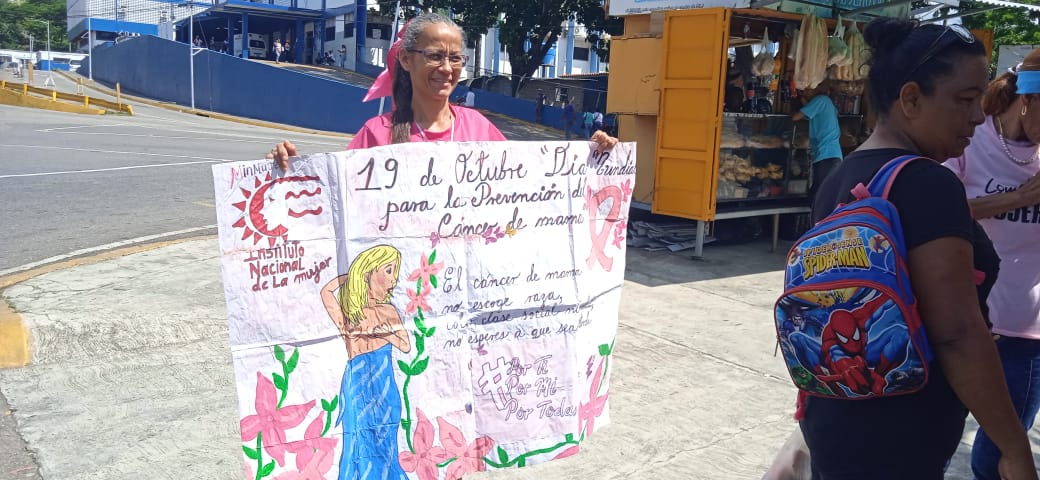 MinMu
Instituto
Nacional
de La mujer
19 de Octubre "Día Mundial
para la Prevención del
Cáncer de mama"
El cáncer de mama
no escoge raza,
clase social
no esperes a que sea
#Por Ti
Por Mi
Por Todas
SPIDER-MAN